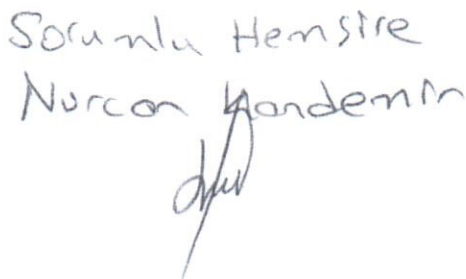 Sorumlu Hemşire
Nurcan Kandemir